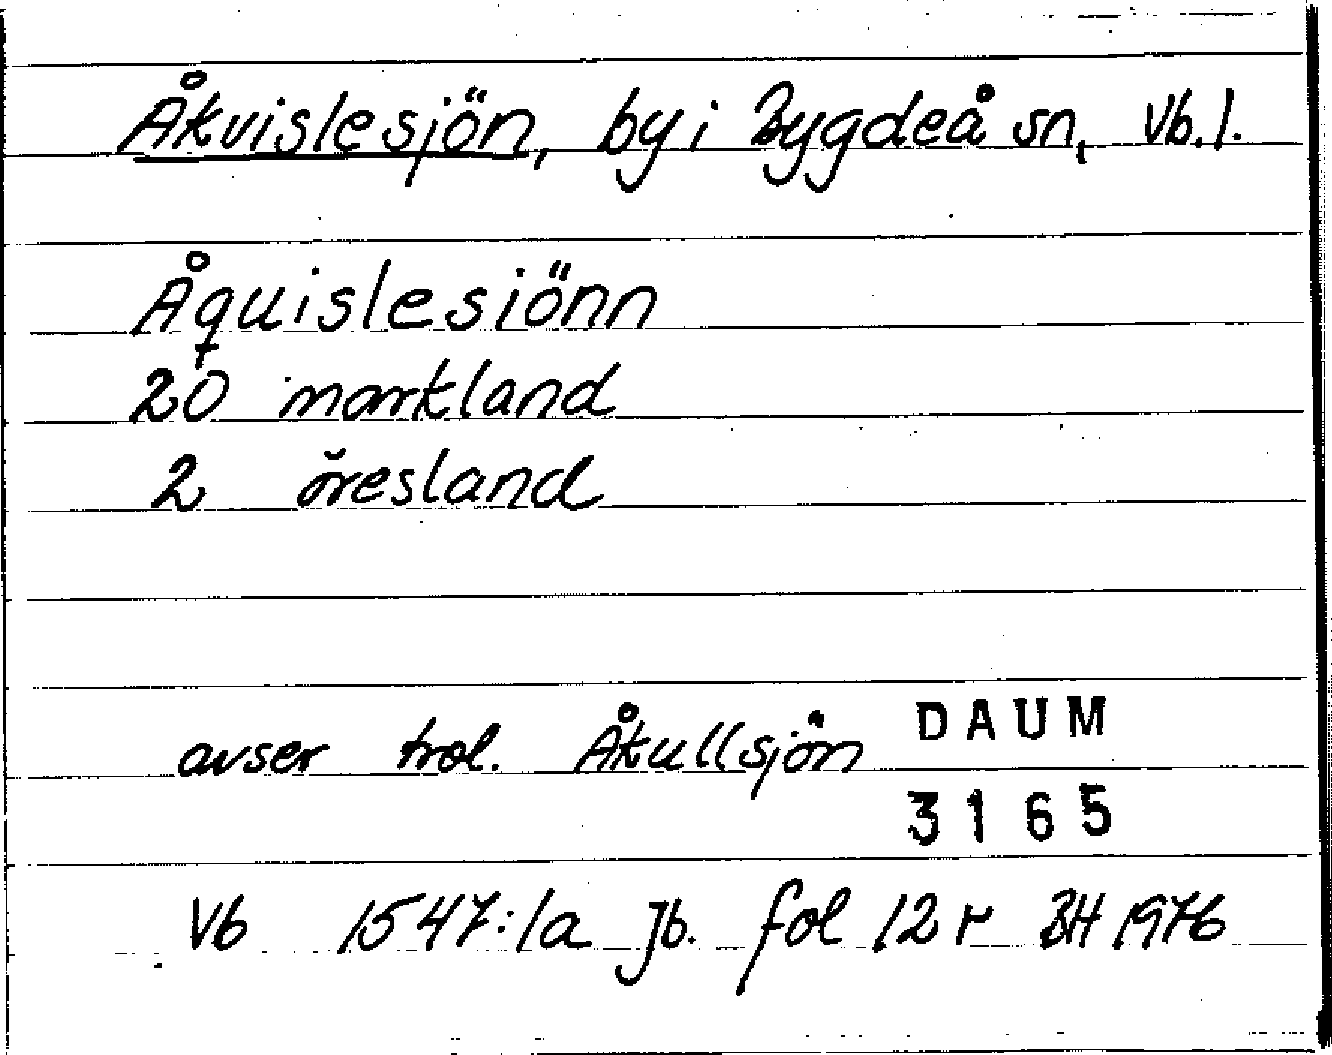 Åkvislesjön, by i Bygdeå sn, Vb. l.
Åquislesiönn
20 markland
2 öresland
avser trol. Åkullsjön
DAUM
3165
Vb 1547:1a Jb. fol 12 r BH 1976